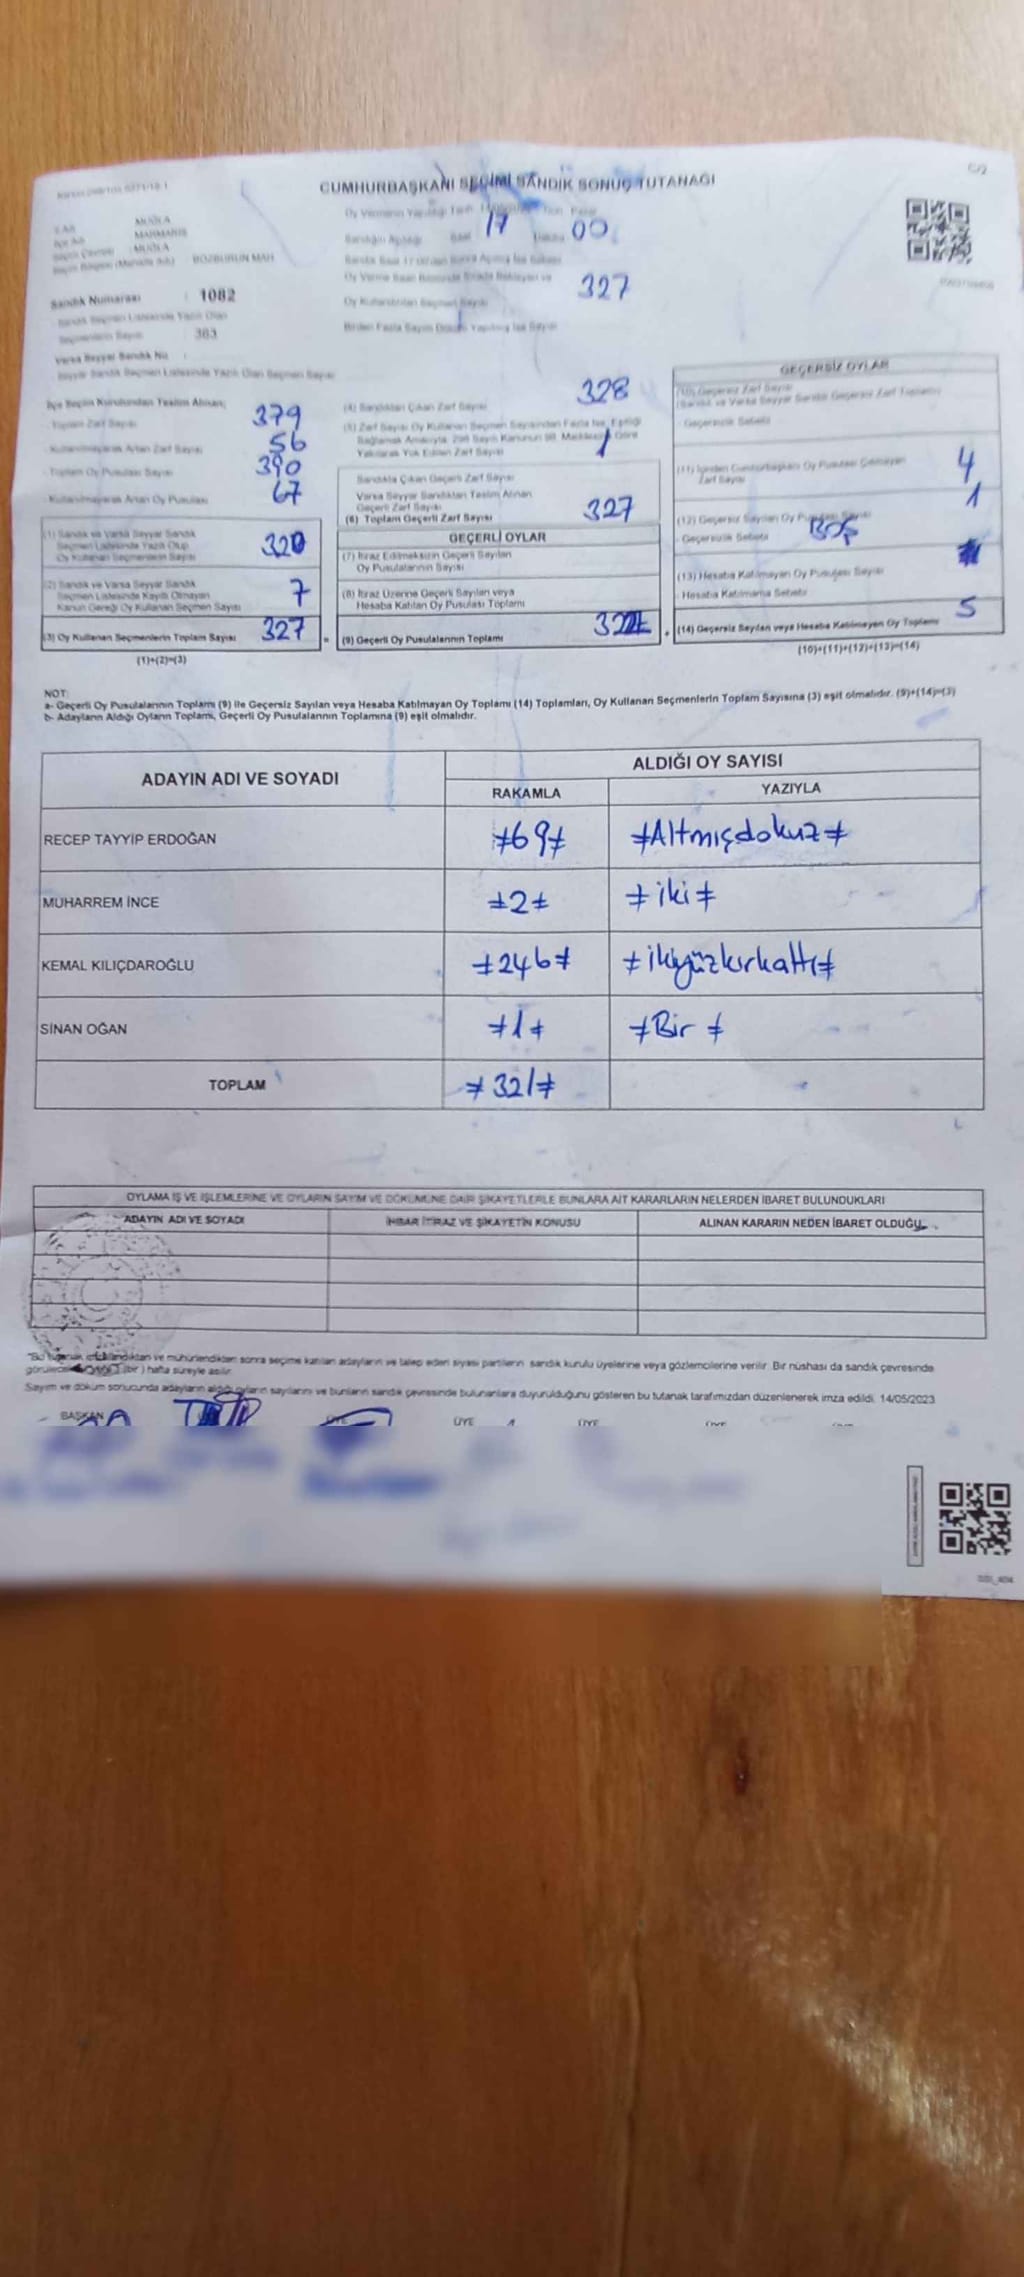 CUMHURBAŞKANI SEÇİMİ SANDIK SONUÇ TUTANAĞI
İl Adı MUĞLA
İlçe Adı MARMARİS
Seçim Çevresi : MUĞLA
BOZBURUN MAH
Oy Vermenin Yapıldığı Tarih
Sandığın Açıldığı Saat 17 Dakika 00
Sandık Numarası : 1082
Sandık Seçmen Listesinde Yazılı Olan
Seçmenlerin Sayısı 383
Oy Kullandırılan Seçmen Sayısı 327
Birden Fazla Sayım Döküm Yapılmış İse Sayısı
Varsa Seyyar Sandık No :
Seyyar Sandık Seçmen Listesinde Yazılı Olan Seçmen Sayısı
İlçe Seçim Kurulundan Teslim Alınan;
- Toplam Zarf Sayısı 379
- Kullanılmayarak Artan Zarf Sayısı 56
- Toplam Oy Pusulası Sayısı 390
- Kullanılmayarak Artan Oy Pusulası 67
(1) Sandık ve Varsa Seyyar Sandık
Seçmen Listesinde Yazılı Olup
Oy Kullanan Seçmenlerin Sayısı 320
(2) Sandık ve Varsa Seyyar Sandık
Seçmen Listesinde Kayıtlı Olmayan
Kanun Gereği Oy Kullanan Seçmen Sayısı 7
(3) Oy Kullanan Seçmenlerin Toplam Sayısı 327
(1)+(2)=(3)
(4) Sandıktan Çıkan Zarf Sayısı 328
(5) Zarf Sayısı Oy Kullanan Seçmen Sayısından Fazla İse, Eşitliği
Sağlamak Amacıyla, 298 Sayılı Kanunun 98. Maddesine Göre
Yakılarak Yok Edilen Zarf Sayısı 1
Sandıkta Çıkan Geçerli Zarf Sayısı
Varsa Seyyar Sandıktan Teslim Alınan
Geçerli Zarf Sayısı
(6) Toplam Geçerli Zarf Sayısı 327
GEÇERLİ OYLAR
(7) İtiraz Edilmeksizin Geçerli Sayılan
Oy Pusulalarının Sayısı
(8) İtiraz Üzerine Geçerli Sayılan veya
Hesaba Katılan Oy Pusulası Toplamı
(9) Geçerli Oy Pusulalarının Toplamı
GEÇERSİZ OYLAR
(10) Geçersiz Zarf Sayısı
(Sandık ve Varsa Seyyar Sandık Geçersiz Zarf Toplamı)
- Geçersizlik Sebebi
(11) İçinden Cumhurbaşkanı Oy Pusulası Çıkmayan
Zarf Sayısı 4
(12) Geçersiz Sayılan Oy Pusulası Sayısı 1
- Geçersizlik Sebebi BOŞ
(13) Hesaba Katılmayan Oy Pusulası Sayısı
- Hesaba Katılmama Sebebi
(14) Geçersiz Sayılan veya Hesaba Katılmayan Oy Toplamı 5
(10)+(11)+(12)+(13)=(14)
NOT:
a- Geçerli Oy Pusulalarının Toplamı (9) ile Geçersiz Sayılan veya Hesaba Katılmayan Oy Toplamı (14) Toplamları, Oy Kullanan Seçmenlerin Toplam Sayısına (3) eşit olmalıdır. (9)+(14)=(3)
b- Adayların Aldığı Oyların Toplamı, Geçerli Oy Pusulalarının Toplamına (9) eşit olmalıdır.
ADAYIN ADI VE SOYADI ALDIĞI OY SAYISI
RAKAMLA YAZIYLA
RECEP TAYYİP ERDOĞAN ≠69≠ ≠Altmışdokuz≠
MUHARREM İNCE ≠2≠ ≠iki≠
KEMAL KILIÇDAROĞLU ≠246≠ ≠ikiyüzkırkaltı≠
SİNAN OĞAN ≠1≠ ≠Bir≠
TOPLAM ≠321≠
OYLAMA İŞ VE İŞLEMLERİNE VE OYLARIN SAYIM VE DÖKÜMÜNE DAİR ŞİKAYETLERLE BUNLARA AİT KARARLARIN NELERDEN İBARET BULUNDUKLARI
ADAYIN ADI VE SOYADI İHBAR İTİRAZ VE ŞİKAYETİN KONUSU ALINAN KARARIN NEDEN İBARET OLDUĞU
"Bu tutanak imzalandıktan ve mühürlendikten sonra seçime katılan adayların ve talep eden siyasi partilerin sandık kurulu üyelerine veya gözlemcilerine verilir. Bir nüshası da sandık çevresinde
(bir) hafta süreyle asılır.
Sayım ve döküm sonucunda adayların aldığı oyların sayılarını ve bunların sandık çevresinde bulunanlara duyurulduğunu gösteren bu tutanak tarafımızdan düzenlenerek imza edildi. 14/05/2023
BAŞKAN ÜYE ÜYE ÜYE